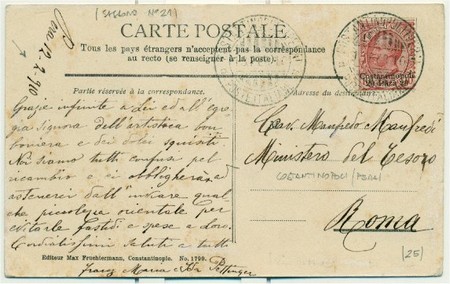 (SASSONE N°21)
Pera 12-2-10
CARTE POSTALE
Tous les pays étrangers n'acceptent pas la correspondance
au recto (se renseigner à la poste).
COSTANTINOPOLI
Costantinopoli
Partie réservée à la correspondance.
Adresse du destinataire.
Grazie infinite a Lei ed all'egre
gia Signora dell'artistica bon
boniera e dei dolci squisiti
Noi siamo tutti confusi pel
ricambio e ci obbligheranno ad
astenerci dall' inviare qual
che orientale per
evitarle fastidi e spese a loro.
Cordialissimi saluti a tutti
Franz Maria
Cav. Manfredo Manfredi
Ministero del Tesoro
COSTANTINOPOLI / PERA/
Roma
(25)
Editeur Max Fruchtermann, Constantinople. No. 1799.